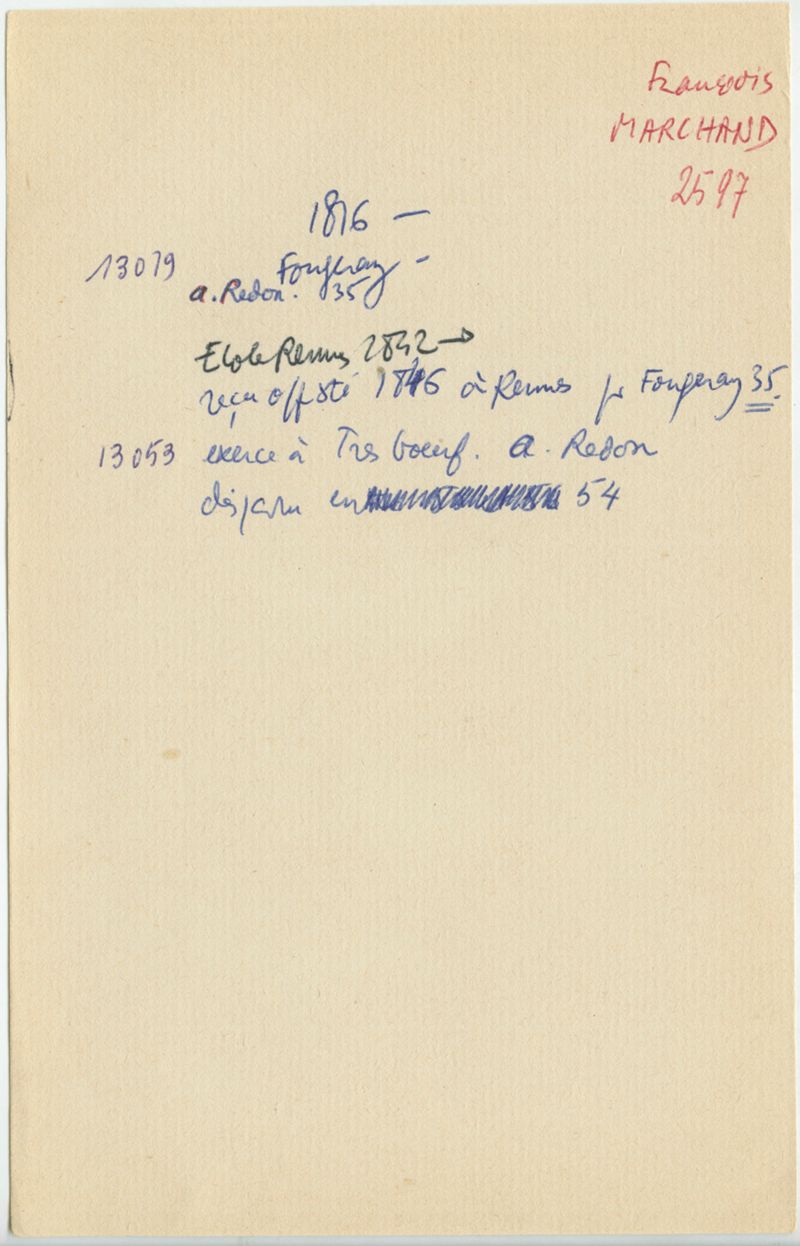 François
MARCHAND
2597
1816 —
13079 Fougeray -
a. Redon. 35
Ecole Rennes 1842 →
reçu off sté 1846 à Rennes pr Fougeray 35.
13053 exerce à Tresboeuf. a. Redon
disparu en 54